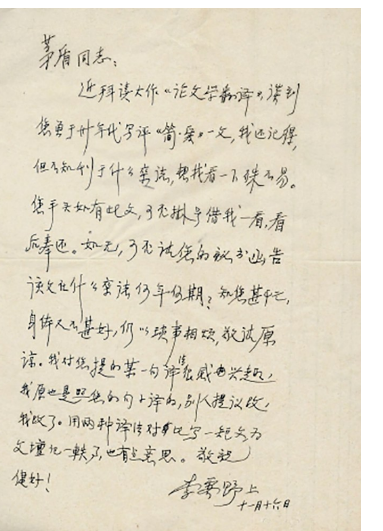 茅盾同志：
近拜读大作《论文学翻译》，谈到
您曾于卅年代写评《简·爱》一文，我还记得，
但不知刊于什么杂志，想找看一下殊不易。
您手头如有此文，可否掛号借我一看，看
后奉还。如无，可否请您的秘书函告
该文在什么杂志何年何期？知您甚忙，
身体又不甚好，仍以琐事相烦，敬请原
谅。我对您提的某一句译法很感兴趣，
我原也是照您的句上译的，别人提议改，
我改了。用两种译法对比写一短文为
文坛记一轶事，也有点意思。敬祝
健好！
李霁野上
十一月十六日